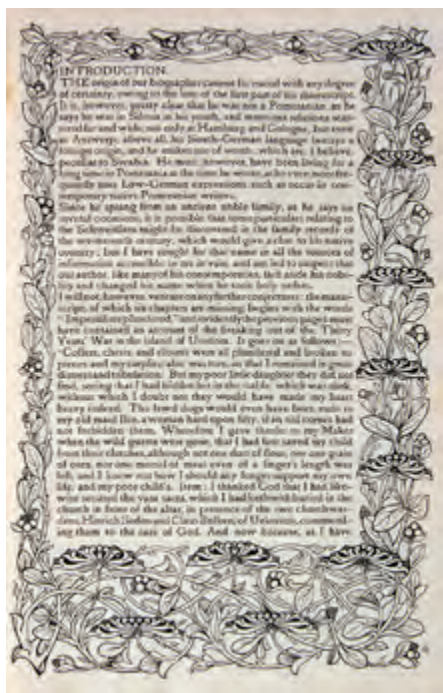 INTRODUCTION.
THE origin of our biographer cannot be traced with any degree
of certainty, owing to the loss of the first part of his manuscript.
It is, however, pretty clear that he was not a Pomeranian, as he
says he was in Silesia in his youth, and mentions relations scat-
tered far and wide, not only at Hamburg and Cologne, but even
at Antwerp; above all, his South-German language betrays a
foreign origin, and he makes use of words which are, I believe,
peculiar to Swabia. He must, however, have been living for a
long time in Pomerania at the time he wrote, as he even more fre-
quently uses Low-German expressions, such as occur in con-
temporary native Pomeranian writers.
Since he sprang from an ancient noble family, as he says on
several occasions, it is possible that some particulars relating to
the Schweidlers might be discovered in the family records of
the seventeenth century, which would give a clue to his native
country; but I have sought for that name in all the sources of
information accessible to me in vain, and am led to suspect that
our author, like many of his contemporaries, laid aside his nobi-
lity and changed his name when he took holy orders.
I will not, however, venture on any further conjectures; the manu-
script, of which six chapters are missing, begins with the words
"Imperialists plundered," and evidently the previous pages must
have contained an account of the breaking out of the Thirty
Years' War in the island of Usedom. It goes on as follows:—
"Coffers, chests, and closets were all plundered and broken to
pieces, and my surplice also was torn, so that I remained in great
distress and tribulation. But my poor little daughter they did not
find, seeing that I had hidden her in the stable, which was dark,
without which I doubt not they would have made my heart
heavy indeed. The lewd dogs would even have been rude to
my old maid Ilse, a woman hard upon fifty, if an old cornet had
not forbidden them. Wherefore I gave thanks to my Maker
when the wild guests were gone, that I had first saved my child
from their clutches, although not one dust of flour, nor one grain
of corn, nor one morsel of meat even of a finger's length was
left, and I knew not how I should any longer support my own
life, and my poor child's. Item: I thanked God that I had like-
wise secured the vasa sacra, which I had forthwith buried in the
church in front of the altar, in presence of the two churchwar-
dens, Hinrich Seden and Claus Bulken, of Uekeritze, commend-
ing them to the care of God. And now because, as I have